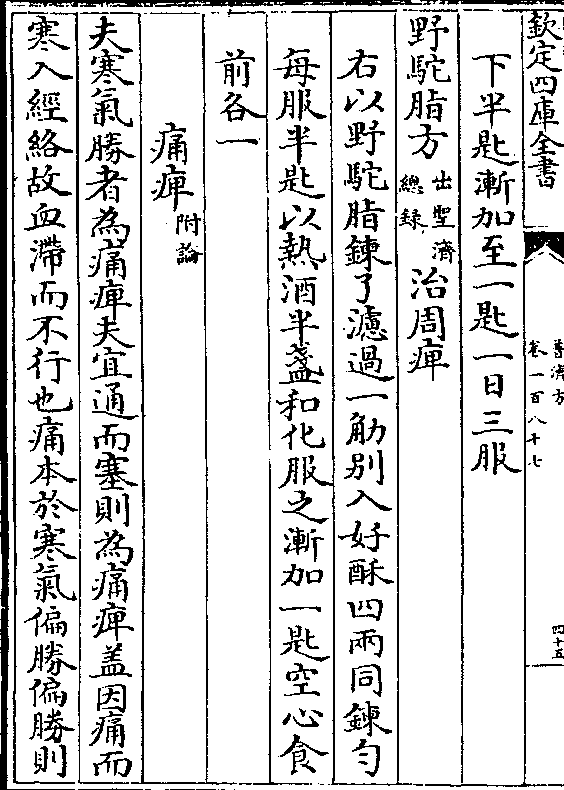 欽定四庫全書
普濟方
卷一百八十七
四十五
下半匙漸加至一匙一日三服
野駝脂方出聖濟總録治周痺
右以野駝脂鍊了濾過一觔别入好酥四兩同鍊勻
每服半匙以熱酒半盞和化服之漸加一匙空心食
前各一
痛痺附論
夫寒氣勝者為痛痺夫宜通而塞則為痛痺盖因痛而
寒入經絡故血滯而不行也痛本於寒氣偏勝偏勝則